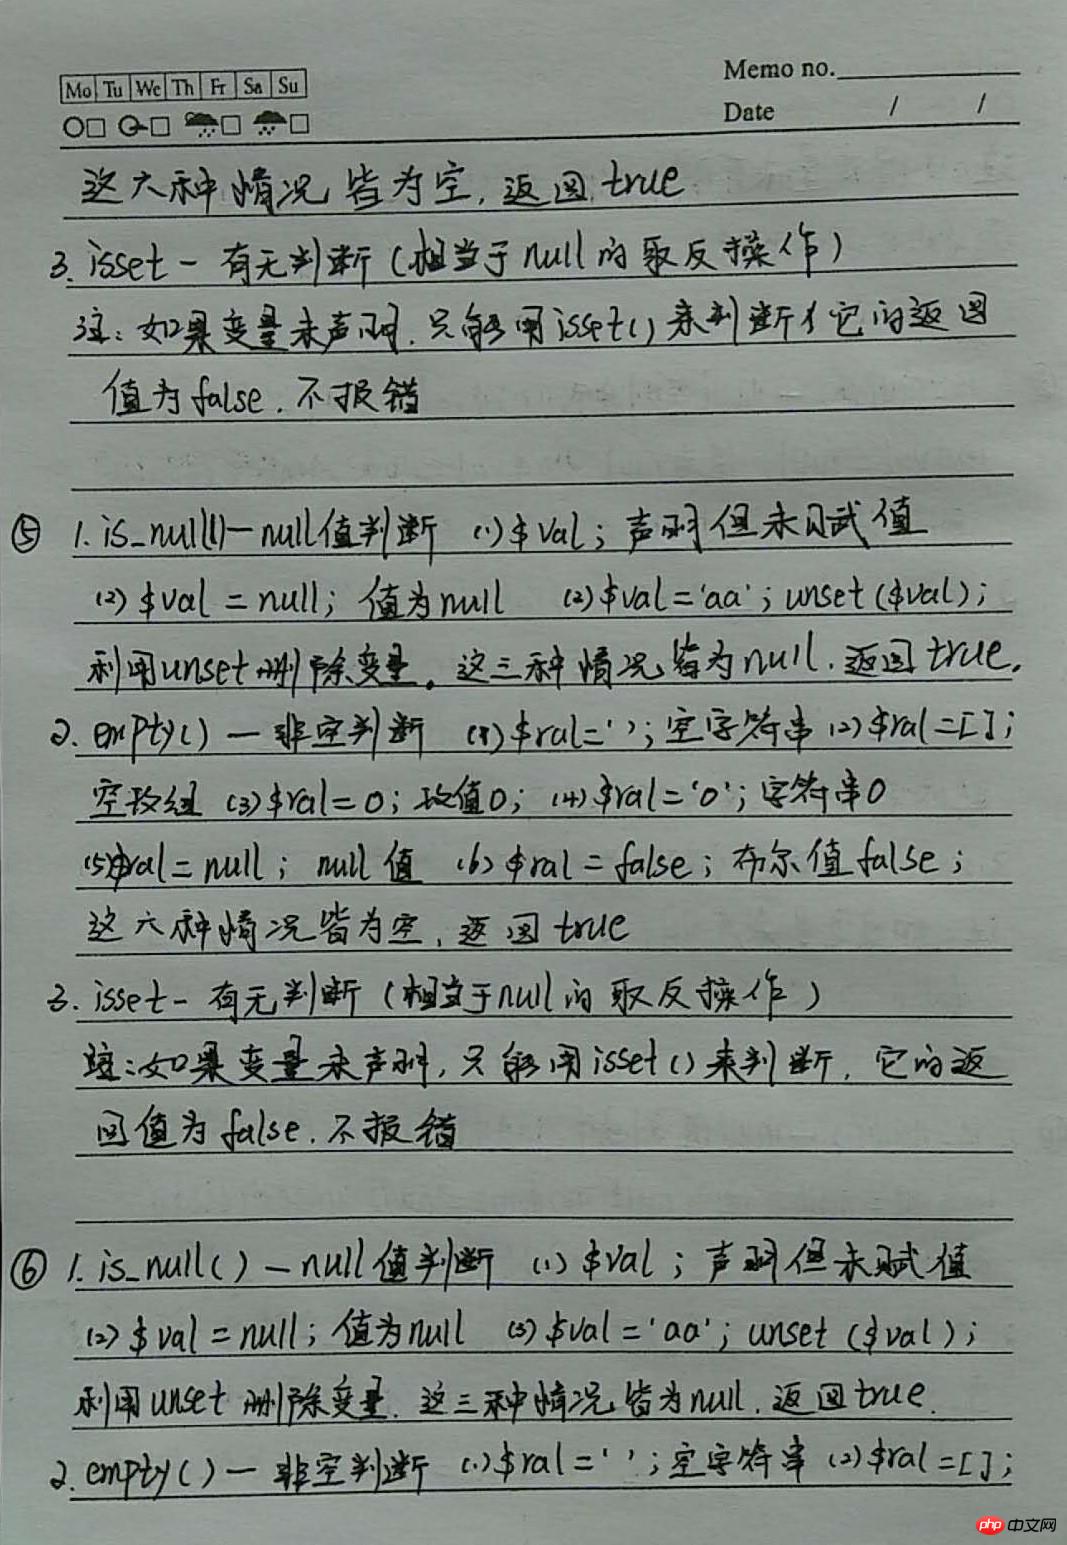 Mo Tu We Th Fr Sa Su
Memo no.
Date / /
这六种情况皆为空,返回true
3. isset - 有无判断(相当于null的取反操作)
注:如果变量未声明,只能用isset()来判断,它的返回
值为false.不报错
⑤ 1. is_null()-null值判断 (1)$val;声明但未赋值
(2)$val=null;值为null (2)$val='aa';unset($val);
利用unset删除变量。这三种情况皆为null.返回true.
2. empty()-非空判断 (1)$ral='';空字符串(2)$ral=[];
空数组(3)$ral=0;数值0;(4)$ral='0';字符串0
(5)$ral=null;null值 (6)$ral=false;布尔值false;
这六种情况皆为空,返回true
3. isset-有无判断(相当于null的取反操作)
注:如果变量未声明,只能用isset()来判断,它的返
回值为false.不报错
⑥ 1. is_null()-null值判断 (1)$val;声明但未赋值
(2)$val=null;值为null (3)$val='aa';unset($val);
利用unset删除变量.这三种情况皆为null.返回true.
2. empty()-非空判断 (1)$ral='';空字符串(2)$ral=[];
php 中文网